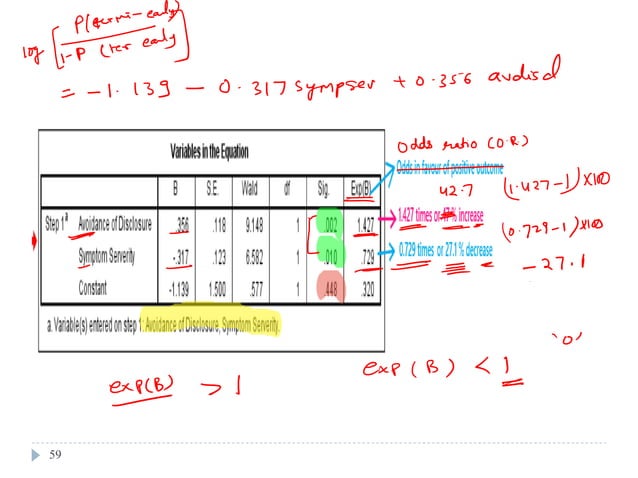 log [P(termi-early) / 1-P (ter early]
= -1.139 - 0.317 sympser + 0.356 avdisd
Odds ratio (O.R)
Variables in the Equation
Odds in favour of positive outcome
42.7 (1.427-1)×100
B S.E. Wald df Sig. Exp(B)
Step 1a Avoidance of Disclosure .356 .118 9.148 1 .002 1.427
1.427 times or % increase
(0.729-1)×100
Symptom Serverity -.317 .123 6.582 1 .010 .729
0.729 times or 27.1 % decrease
-27.1
Constant -1.139 1.500 .577 1 .448 .320
a. Variable(s) entered on step 1: Avoidance of Disclosure, Symptom Serverity.
'0'
exp(B) > 1
exp(B) < 1
59